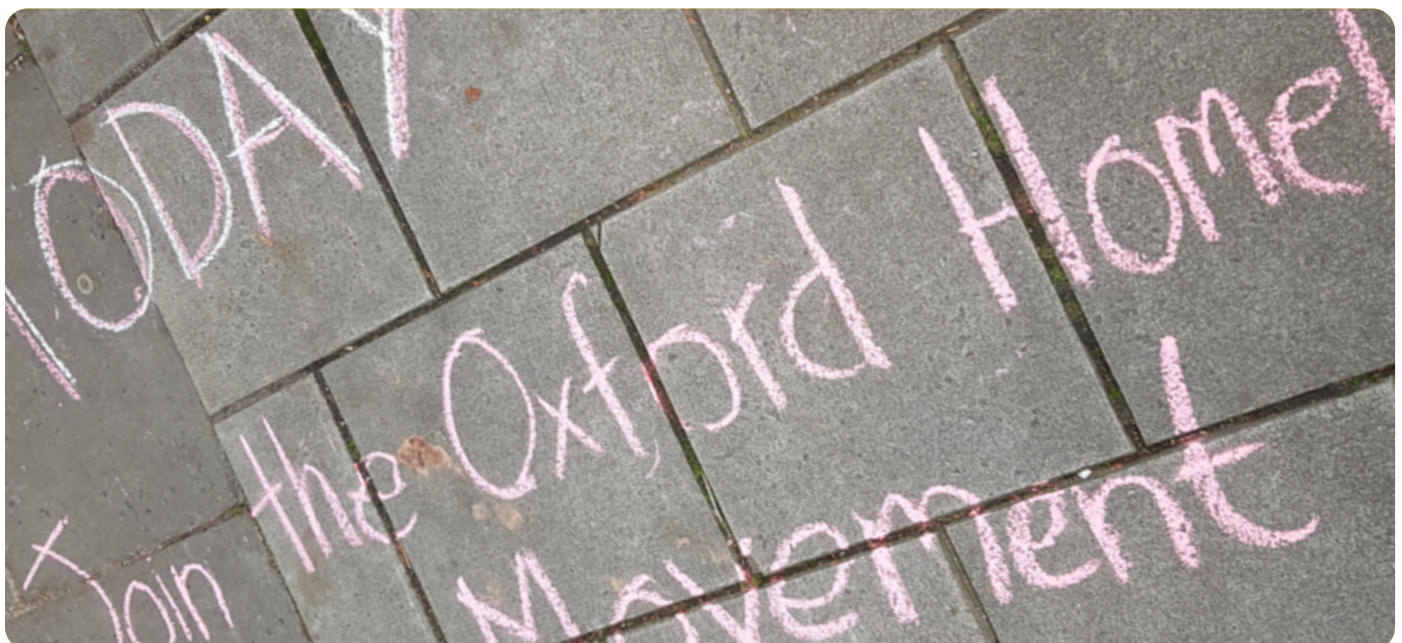 TODAY
Join the Oxford Homel
Movement